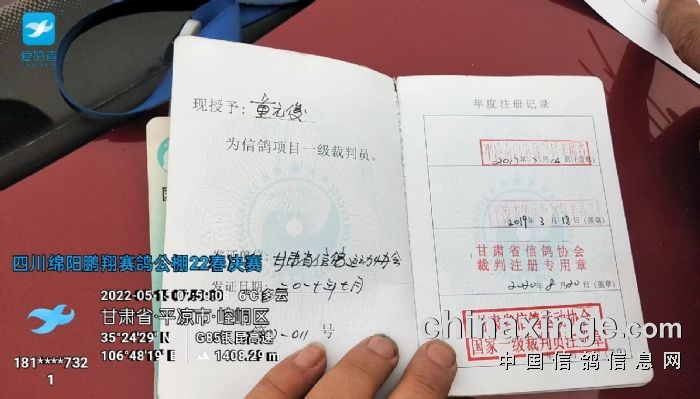 爱鸽者
现授予：童元俊
为信鸽项目一级裁判员。
发证单位：甘肃省信鸽运动协会
发证日期：二〇一七年七月
-011 号
年度注册记录
2017年3月14日（盖章）
2019年3月18日（盖章）
甘肃省信鸽协会
裁判注册专用章
2020年8月20日（盖章）
甘肃省信鸽运动协会
国家一级裁判员注册章
四川绵阳鹏翔赛鸽公棚22春决赛
6℃多云
甘肃省·平凉市·崆峒区
35°24′29″N G85银昆高速
106°48′19″E 1408.29m
181****732
1
chinaxinge.com
中国信鸽信息网